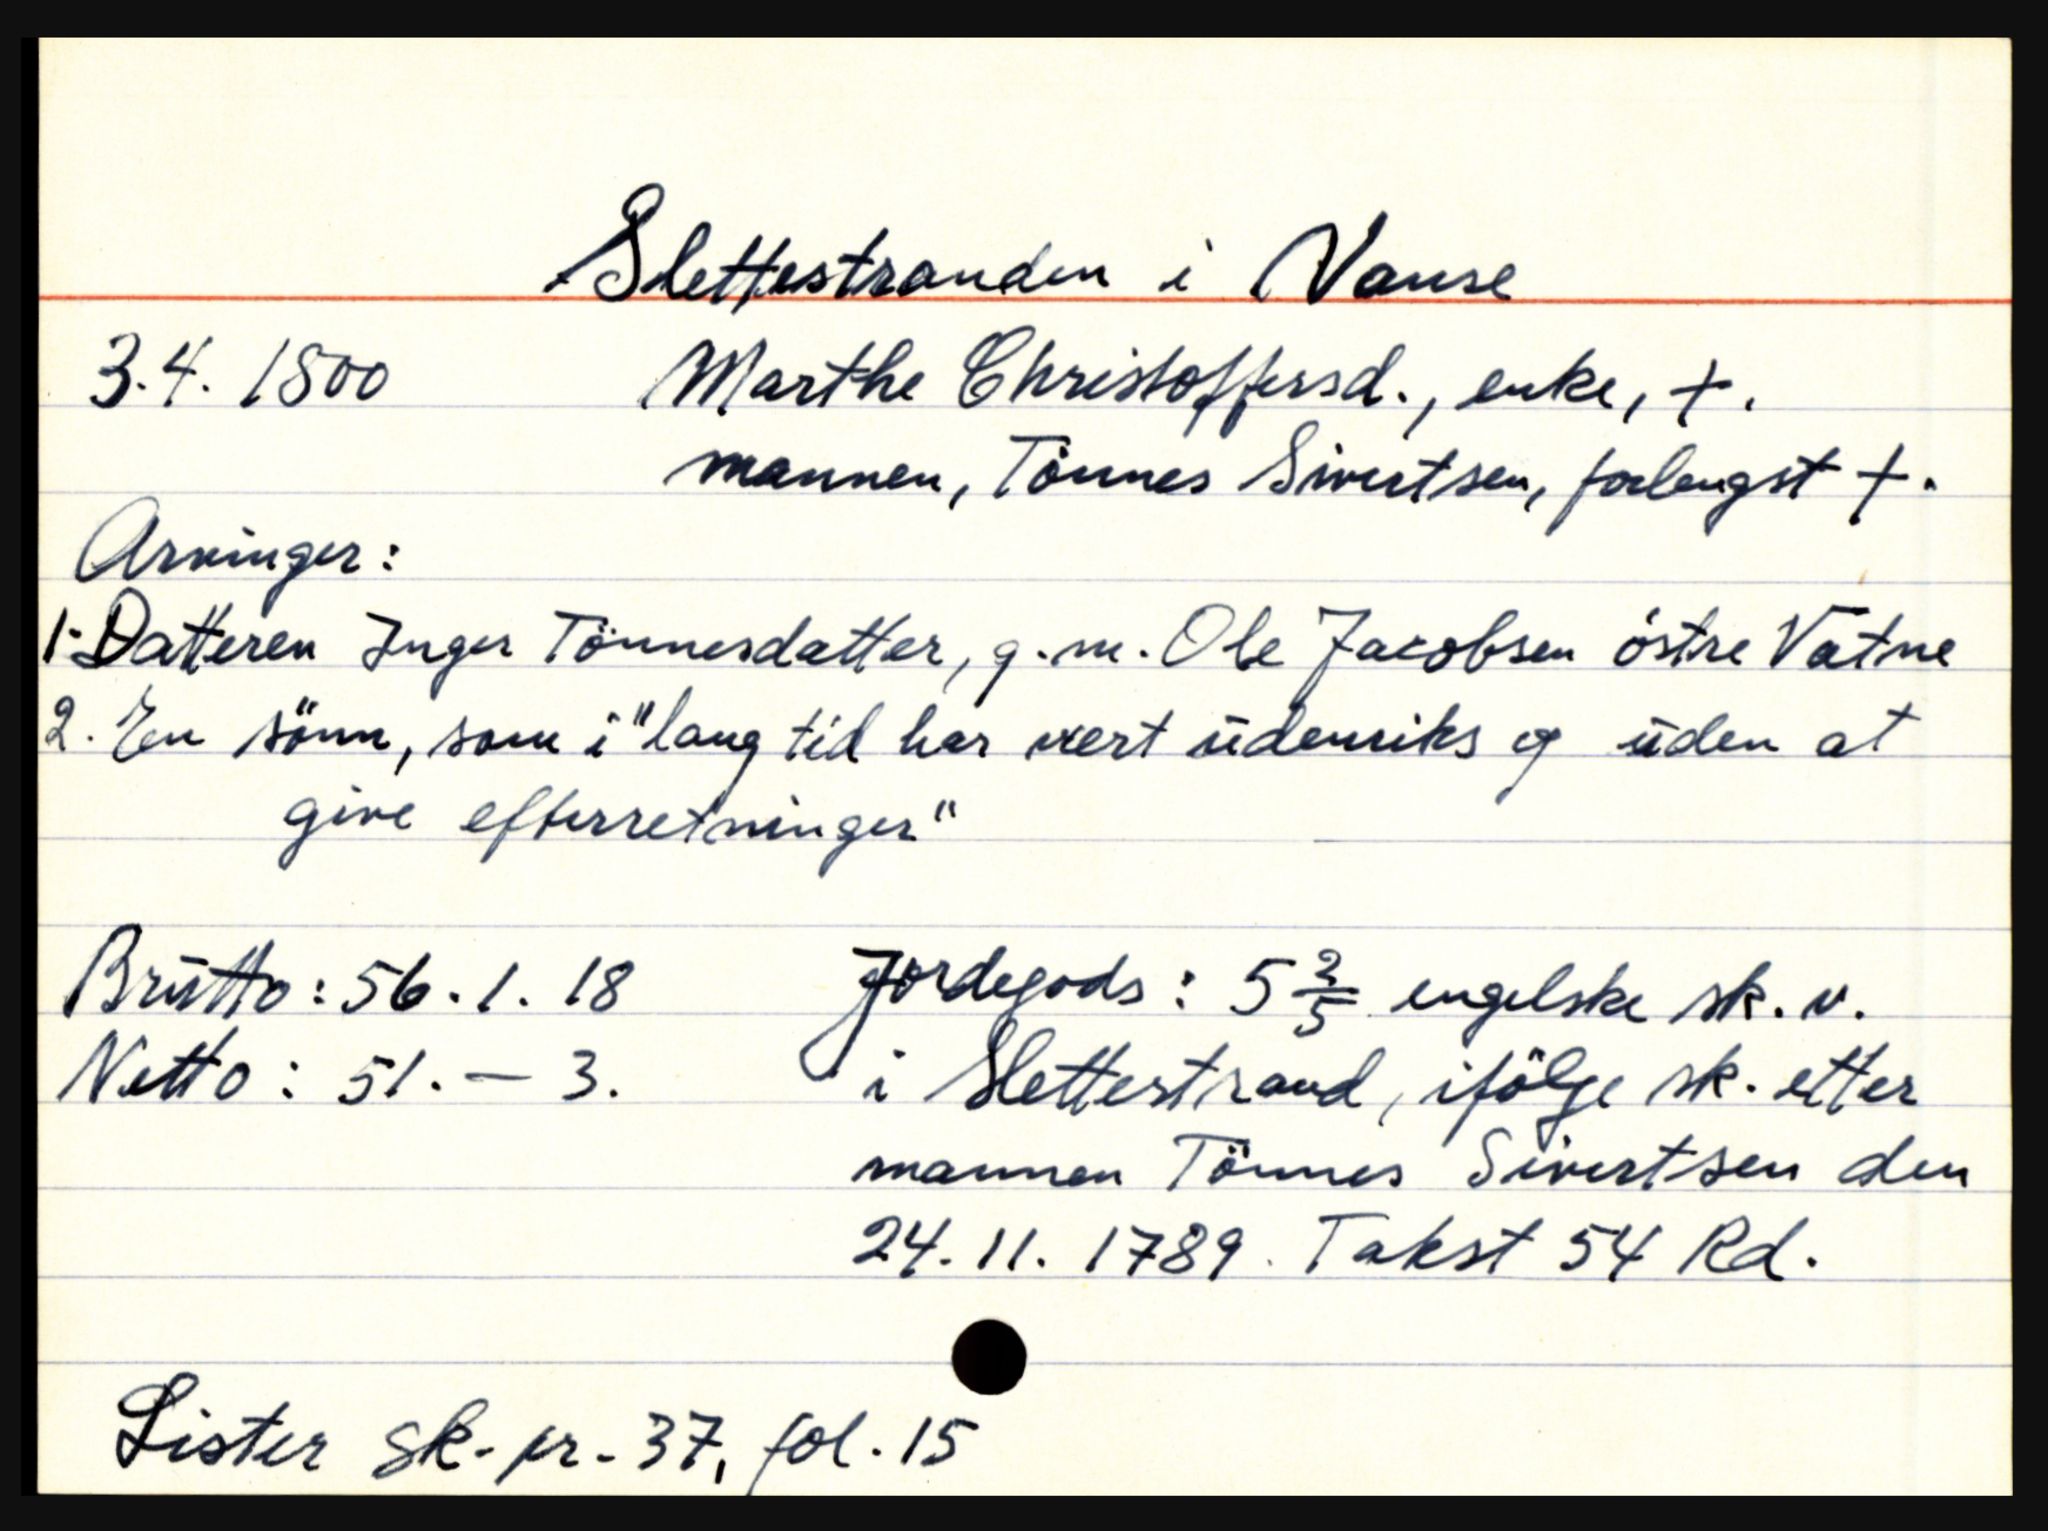 Slettestranden i Vanse
3.4. 1800 Marthe Christoffersd., enke, +.
mannen, Tönnes Sivertsen, forlengst +.
Arvinger:
1. Datteren Inger Tönnesdatter, g.m. Ole Jacobsen östre Vatne
2. En sönn, som i "lang tid har vert udenriks og uden at
give efterretninger"
Brutto: 56. 1. 18 Jordegods: 5 2/5 engelske sk. v.
Netto: 51. — 3. i Slettestrand, ifölge sk. etter
mannen Tönnes Sivertsen den
24. 11. 1789. Takst 54 Rd.
Lister sk. pr. 37, fol. 15